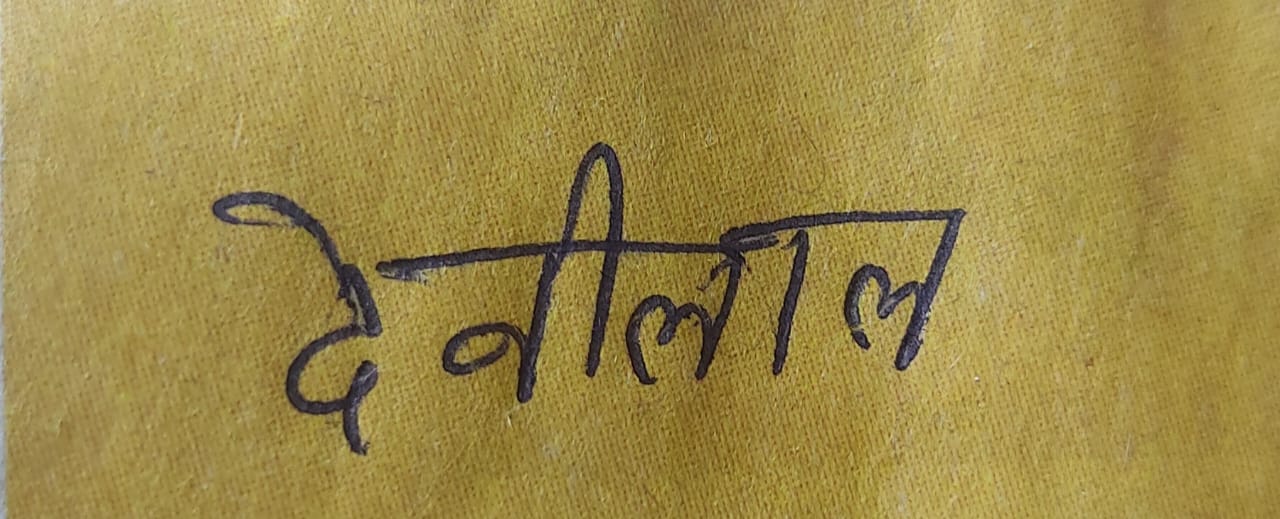 देवीलाल